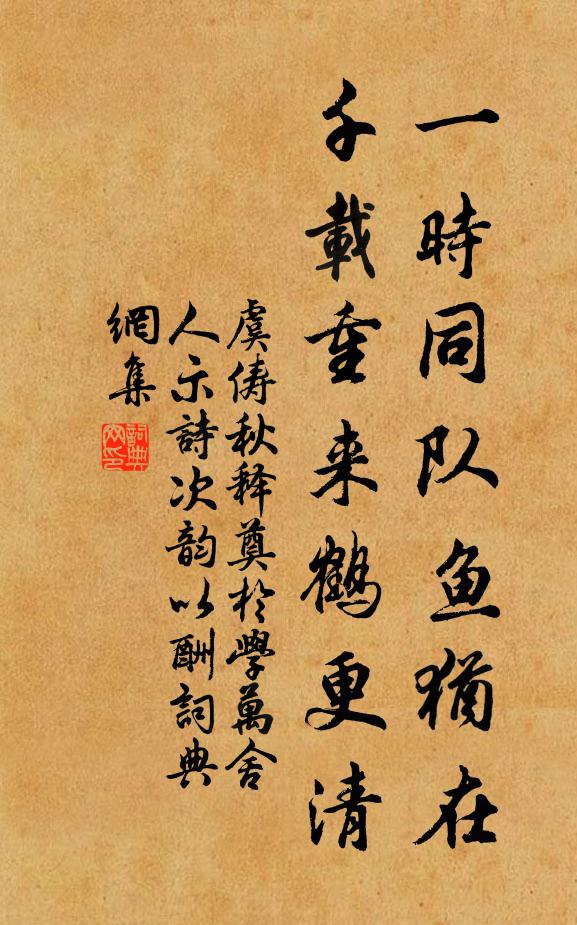 一時同队鱼猶在
千載重来鶴更清
虞俦秋释奠於學萬舍
人示詩次韵以酬詞典
網集
詞典
网印